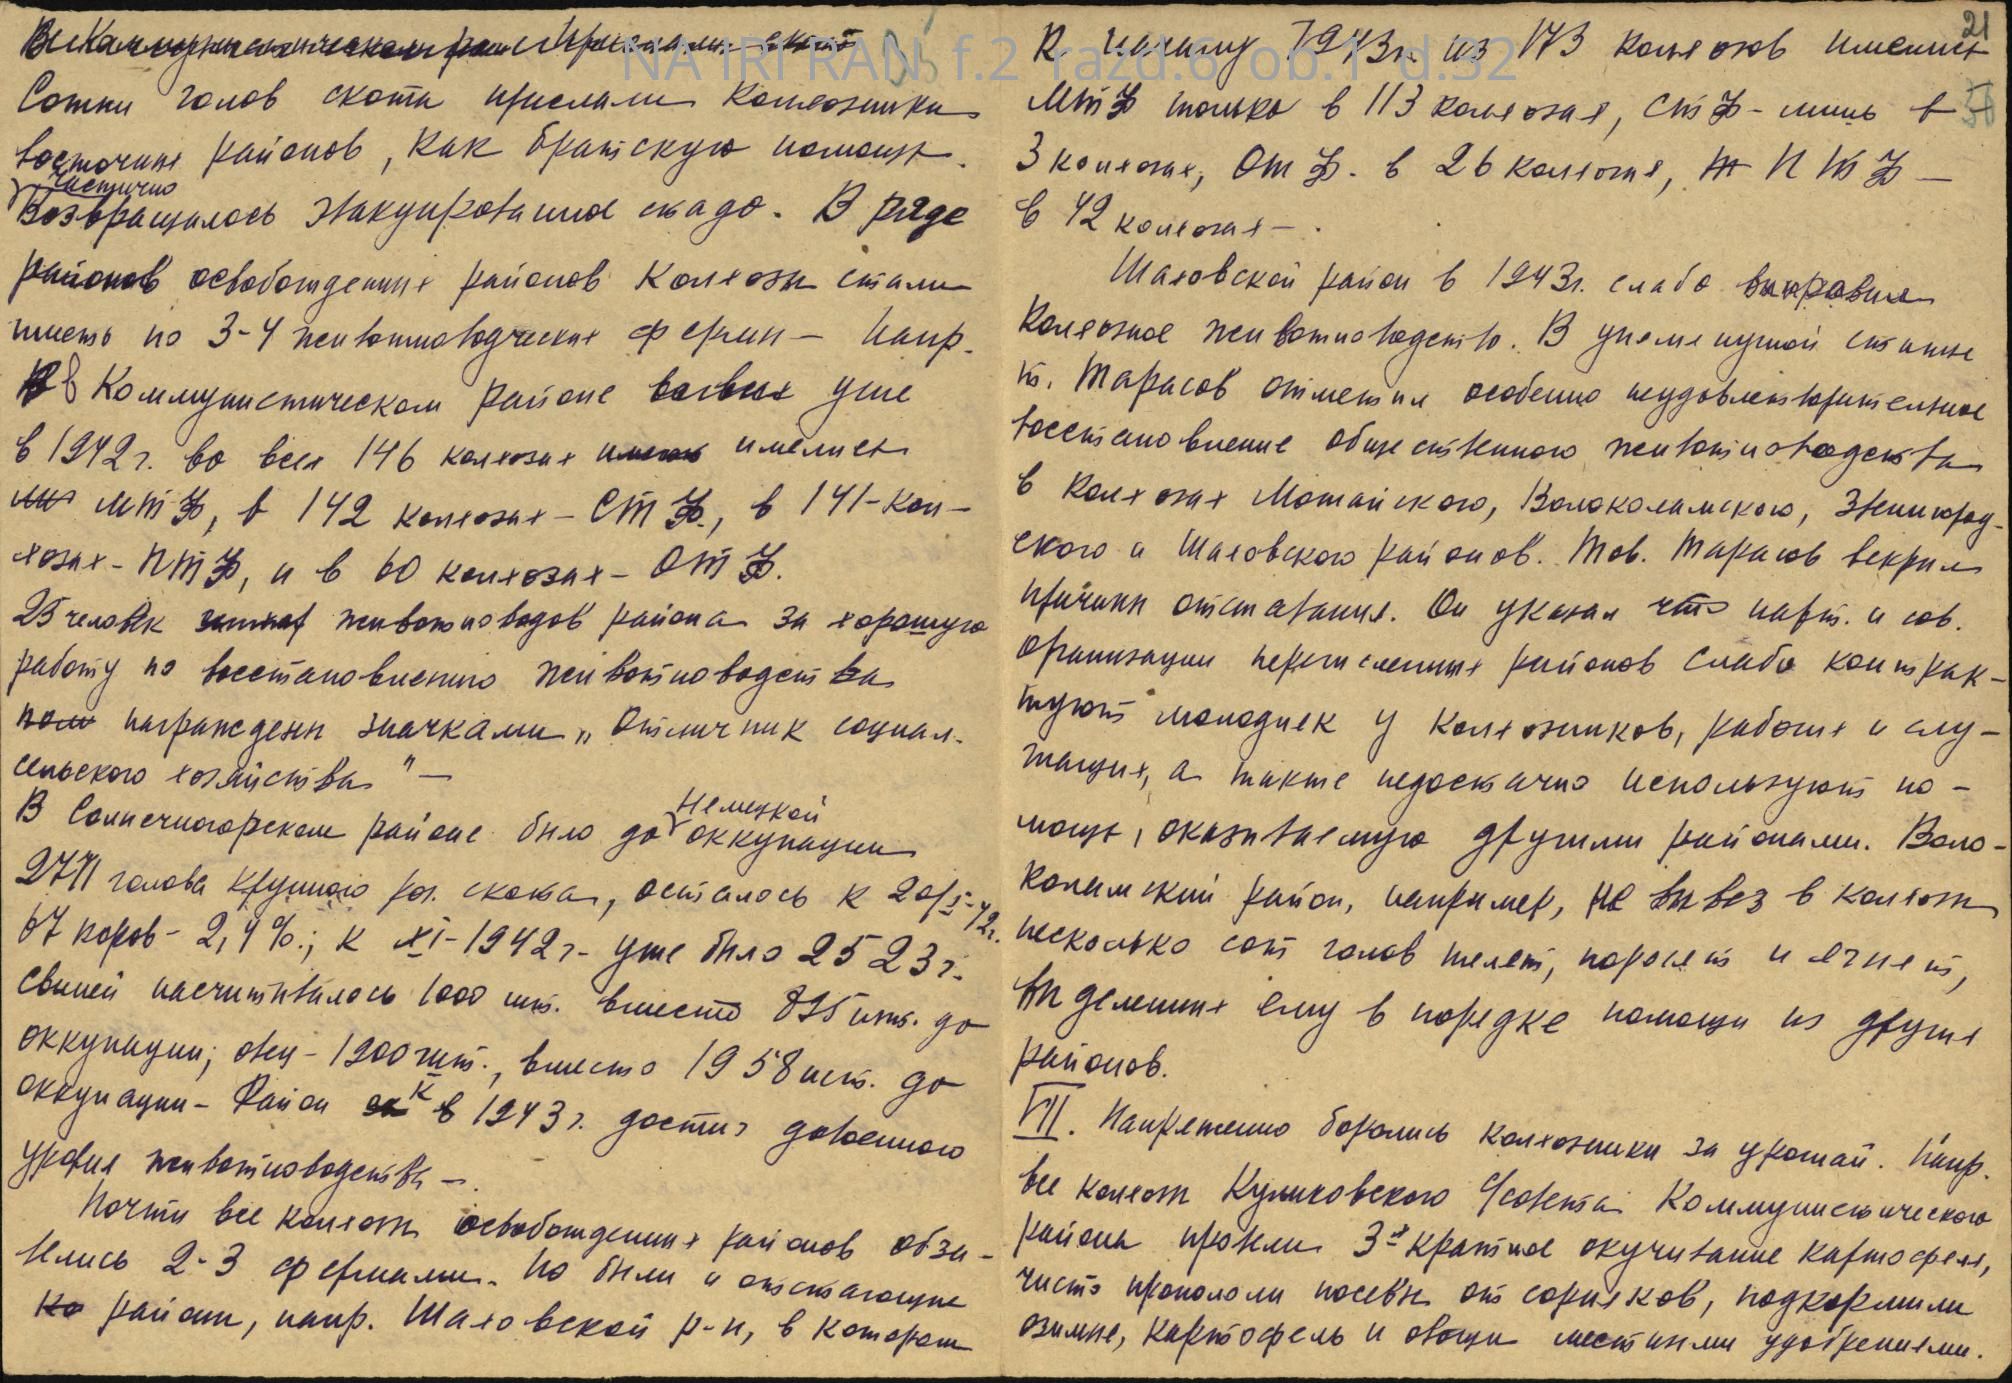 Сотни голов скота прислали колхозники
восточных районов, как братскую помощь.
частично
Возвращалось эвакуированное стадо. В ряде
районов освобожденных районов колхозы стали
иметь по 3-4 животноводческих фермы – Напр.
в Коммунистическом районе уже
в 1942 г. во всех 146 колхозах имелись
МТФ, в 142 колхозах – СТФ, в 141-кол-
хозах – ПТФ, и в 60 колхозах – ОТФ.
25 человек животноводов района за хорошую
работу по восстановлению животноводства
награждены значками „Отличник социал.
сельского хозяйства" –
В Солнечногорском районе было до немецкой оккупации
2771 голова крупного рог. скота, осталось к 20/I-42г.
67 коров – 2,4%; к XI-1942 г- уже было 2523 г.
Свиней насчитывалось 1000 шт. вместо 835 шт. до
оккупации; овец – 1900 шт., вместо 1958 шт. до
оккупации – Район к 1943 г. достиг довоенного
уровня животноводства –.
Почти все колхозы освобожденных районов обза-
велись 2-3 фермами. Но были и отстающие
районы, напр. Шаховской р-н, в котором
21
К началу 1943г. из 173 колхозов имелись
МТФ только в 113 колхозах, СТФ – лишь в
3 колхозах, ОТФ – в 26 колхозах, ПТФ –
в 42 колхозах – .
Шаховской район в 1943г. слабо выправил
колхозное животноводство. В упомянутой статье
т. Тарасов отметил особенно неудовлетворительное
восстановление общественного животноводства
в колхозах Можайского, Волоколамского, Звенигород-
ского и Шаховского районов. Тов. Тарасов вскрыл
причины отставания. Он указал что парт. и сов.
организации перечисленных районов слабо контрак-
туют молодняк у колхозников, рабочих и слу-
жащих, а также недостачно используют по-
мощь, оказываемую другими районами. Воло-
коламский район, например, не вывез в колхозы
несколько сот голов телят, поросят и ягнят,
выделенных ему в порядке помощи из других
районов.
VII. Напряженно боролись колхозники за урожай. Напр.
все колхозы Куликовского с/совета Коммунистического
района провели 3-х кратное окучивание картофеля,
чисто пропололи посевы от сорняков, подкормили
озимые, картофель и овощи местными удобрениями.
NA IRI RAN f.2 razd.6 ob.1 d.32